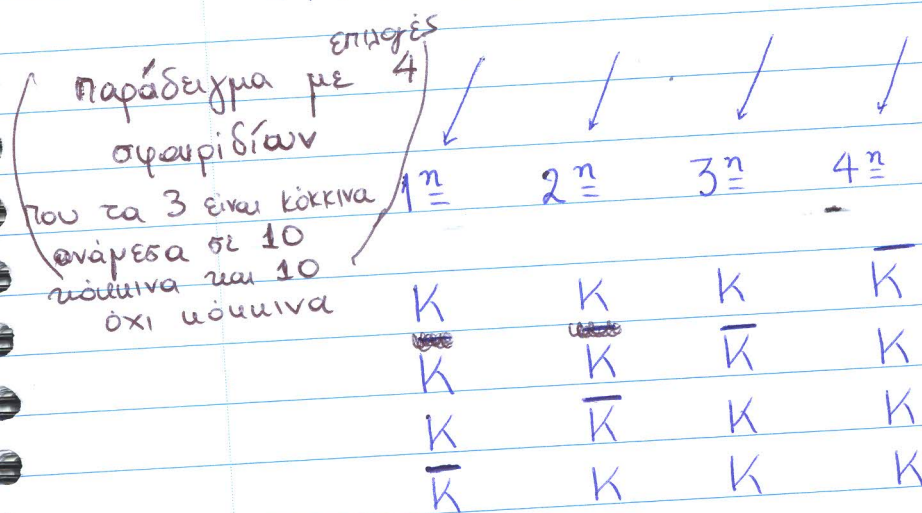 επιλογές
παράδειγμα με 4
σφαιριδίων
που τα 3 είναι κόκκινα
ανάμεσα σε 10
κόκκινα και 10
όχι κόκκινα
1η 2η 3η 4η
K K K K̅
K K K̅ K
K K̅ K K
K̅ K K K